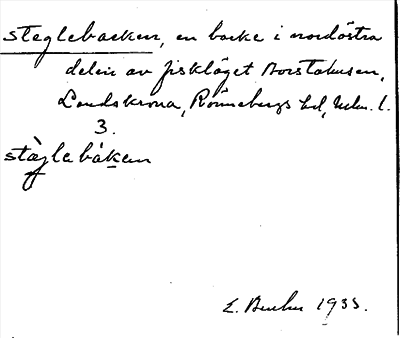 Steglebacken, en backe i nordöstra
delen av fiskläget Borstahusen,
Landskrona, Rönnebergs hd, Mlm. l.
3.
stæ̀glebákan
1935.